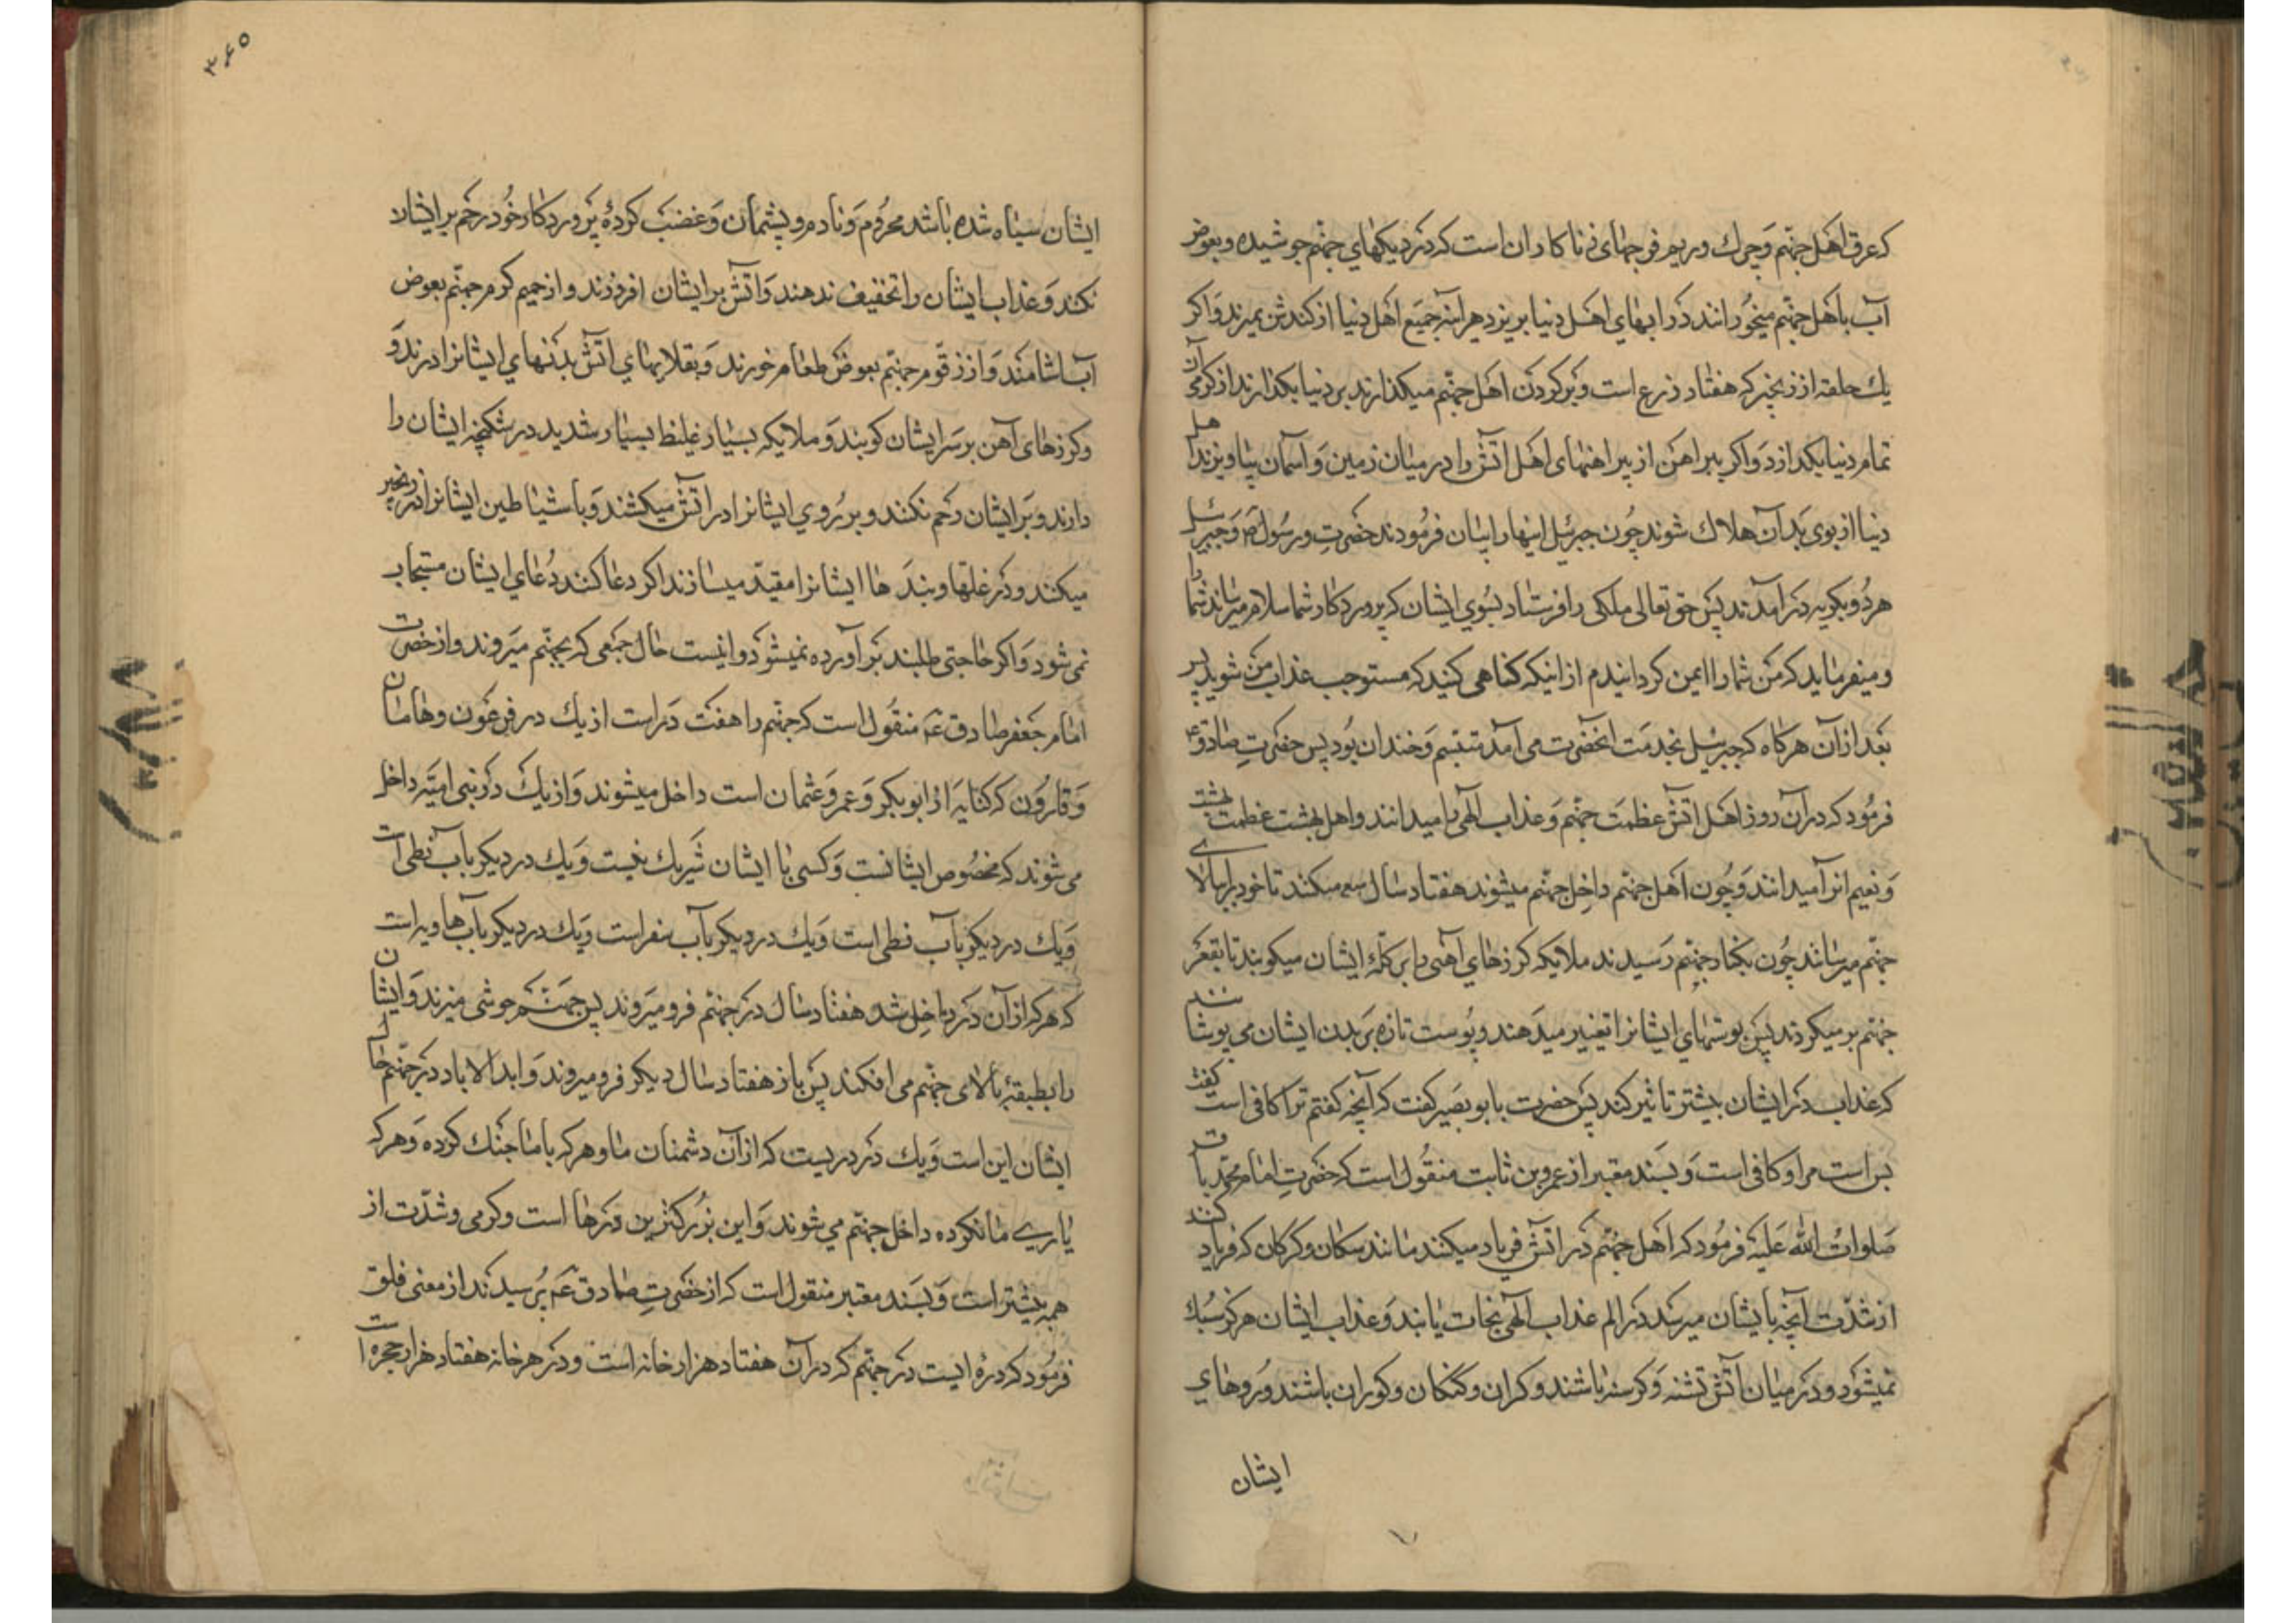 که عرق اهل جهنم و چرك و ريم فرجهاى زناكاران است كه در ديكهاي جهنم جوشيده و بعوض
آب باهل جهنم ميخورانند در ابهاي اهل دنيا بريزد هراينه جميع اهل دنيا از كندش بميرند و اكر
يك حلقه از زنجير كه هفتاد ذرع است و بر كردن اهل جهنم ميكذارند بر دنيا بكذارند از كرمي آن
تمام دنيا بكدازد و اكر پيراهن از پيراهنهاى اهل اتش را در ميان زمين و آسمان بياويزند اهل
دنيا از بوى بد آن هلاك شوند چون جبرئيل اينها را بيان فرمودند حضرت رسول ص و جبرئيل
هر دو بكريه در آمدند پس حق تعالى ملكى را فرستاد بسوي ايشان كه پروردكار شما سلام ميرساند شما را
و ميفرمايد كه من شما را ايمن كردانيدم از اينكه كناهى كنيد كه مستوجب عذاب من شويد پس
بعد از آن هركاه كه جبرئيل بخدمت انحضرت مى آمد متبسم و خندان بود پس حضرت صادق ع
فرمود كه در آن روز اهل اتش عظمت جهنم و عذاب الهى را ميدانند و اهل بهشت عظمت بهشت
و نعيم انرا ميدانند و چون اهل جهنم داخل جهنم ميشوند هفتاد سال سعى ميكنند تا خود را ببالاى
جهنم ميرسانند چون بكنار جهنم رسيدند ملايكه كرزهاي آهنى را بر كلهٔ ايشان ميكوبند تا بقعر
جهنم بر ميكردند پس پوستهاي ايشانرا تغيير ميدهند و پوست تازه بر بدن ايشان مي پوشانند
كه عذاب در ايشان بيشتر تاثير كند پس حضرت بابو بصير كفت كه آنچه كفتم ترا كافى است كفت
بس است مرا و كافى است و بسند معتبر از عمرو بن ثابت منقول است كه حضرت امام محمد باقر
صلوات الله عليه فرمود كه اهل جهنم در اتش فرياد ميكنند مانند سكان و كركان كه فرياد كنند
از شدت آنچه بايشان ميرسد در الم عذاب الهى نجات يابند و عذاب ايشان هركز سبك
نميشود و در ميان آتش تشنه و كرسنه باشند و كران و كنكان و كوران باشند و روهاي
ايشان
٣٦٥
ايشان سياه شده باشد محروم و نادم و پشيمان و غضب كردهٔ پروردكار خود رحم بر ايشان
نكند و عذاب ايشان را تخفيف ندهند و اتش بر ايشان افروزند و از حميم كرم جهنم بعوض
آب اشامند و از زقوم جهنم بعوض طعام خورند و بقلابهاي اتش بدنهاي ايشانرا درند و
و كرزهاى آهن بر سر ايشان كوبند و ملايكه بسيار غليظ بسيار شديد در شكنجه ايشان را
دارند و بر ايشان رحم نكنند و بر روي ايشانرا در اتش ميكشند و با شياطين ايشانرا در زنجير
ميكنند و در غلها و بندها ايشانرا مقيد ميسازند اكر دعا كنند دعاي ايشان مستجاب
نمى شود و اكر حاجتى طلبند بر آورده نميشود و اينست حال جمعى كه بجهنم ميروند و از حضرت
امام جعفر صادق ع منقول است كه جهنم را هفت در است از يك در فرعون و هامان
و قارون كه كنايه از ابوبكر و عمر و عثمان است داخل ميشوند و از يك در بنى اميه داخل
مى شوند كه مخصوص ايشانست و كسى با ايشان شريك نيست و يك در ديكر باب لظى است
و يك در ديكر باب لظى است و يك در ديكر باب سقر است و يك در ديكر باب هاويه است
كه هر كه از آن در داخل شد هفتاد سال در جهنم فرو ميروند پس جهنم جوشى ميزند و ايشان
را بطبقهٔ بالاى جهنم مى افكند پس باز هفتاد سال ديكر فرو ميروند و ابد الاباد در جهنم حال
ايشان اين است و يك در دريست كه از آن دشمنان ما و هر كه با ما جنك كرده و هر كه
ياري ما نكرده داخل جهنم مي شوند و اين بزركترين درها است و كرمى و شدت از
همه بيشتر است و بسند معتبر منقول است كه از حضرت صادق ع پرسيدند از معنى فلق
فرمود كه درهٔ ايست در جهنم كه در آن هفتاد هزار خانه است و در هر خانه هفتاد هزار حجره است